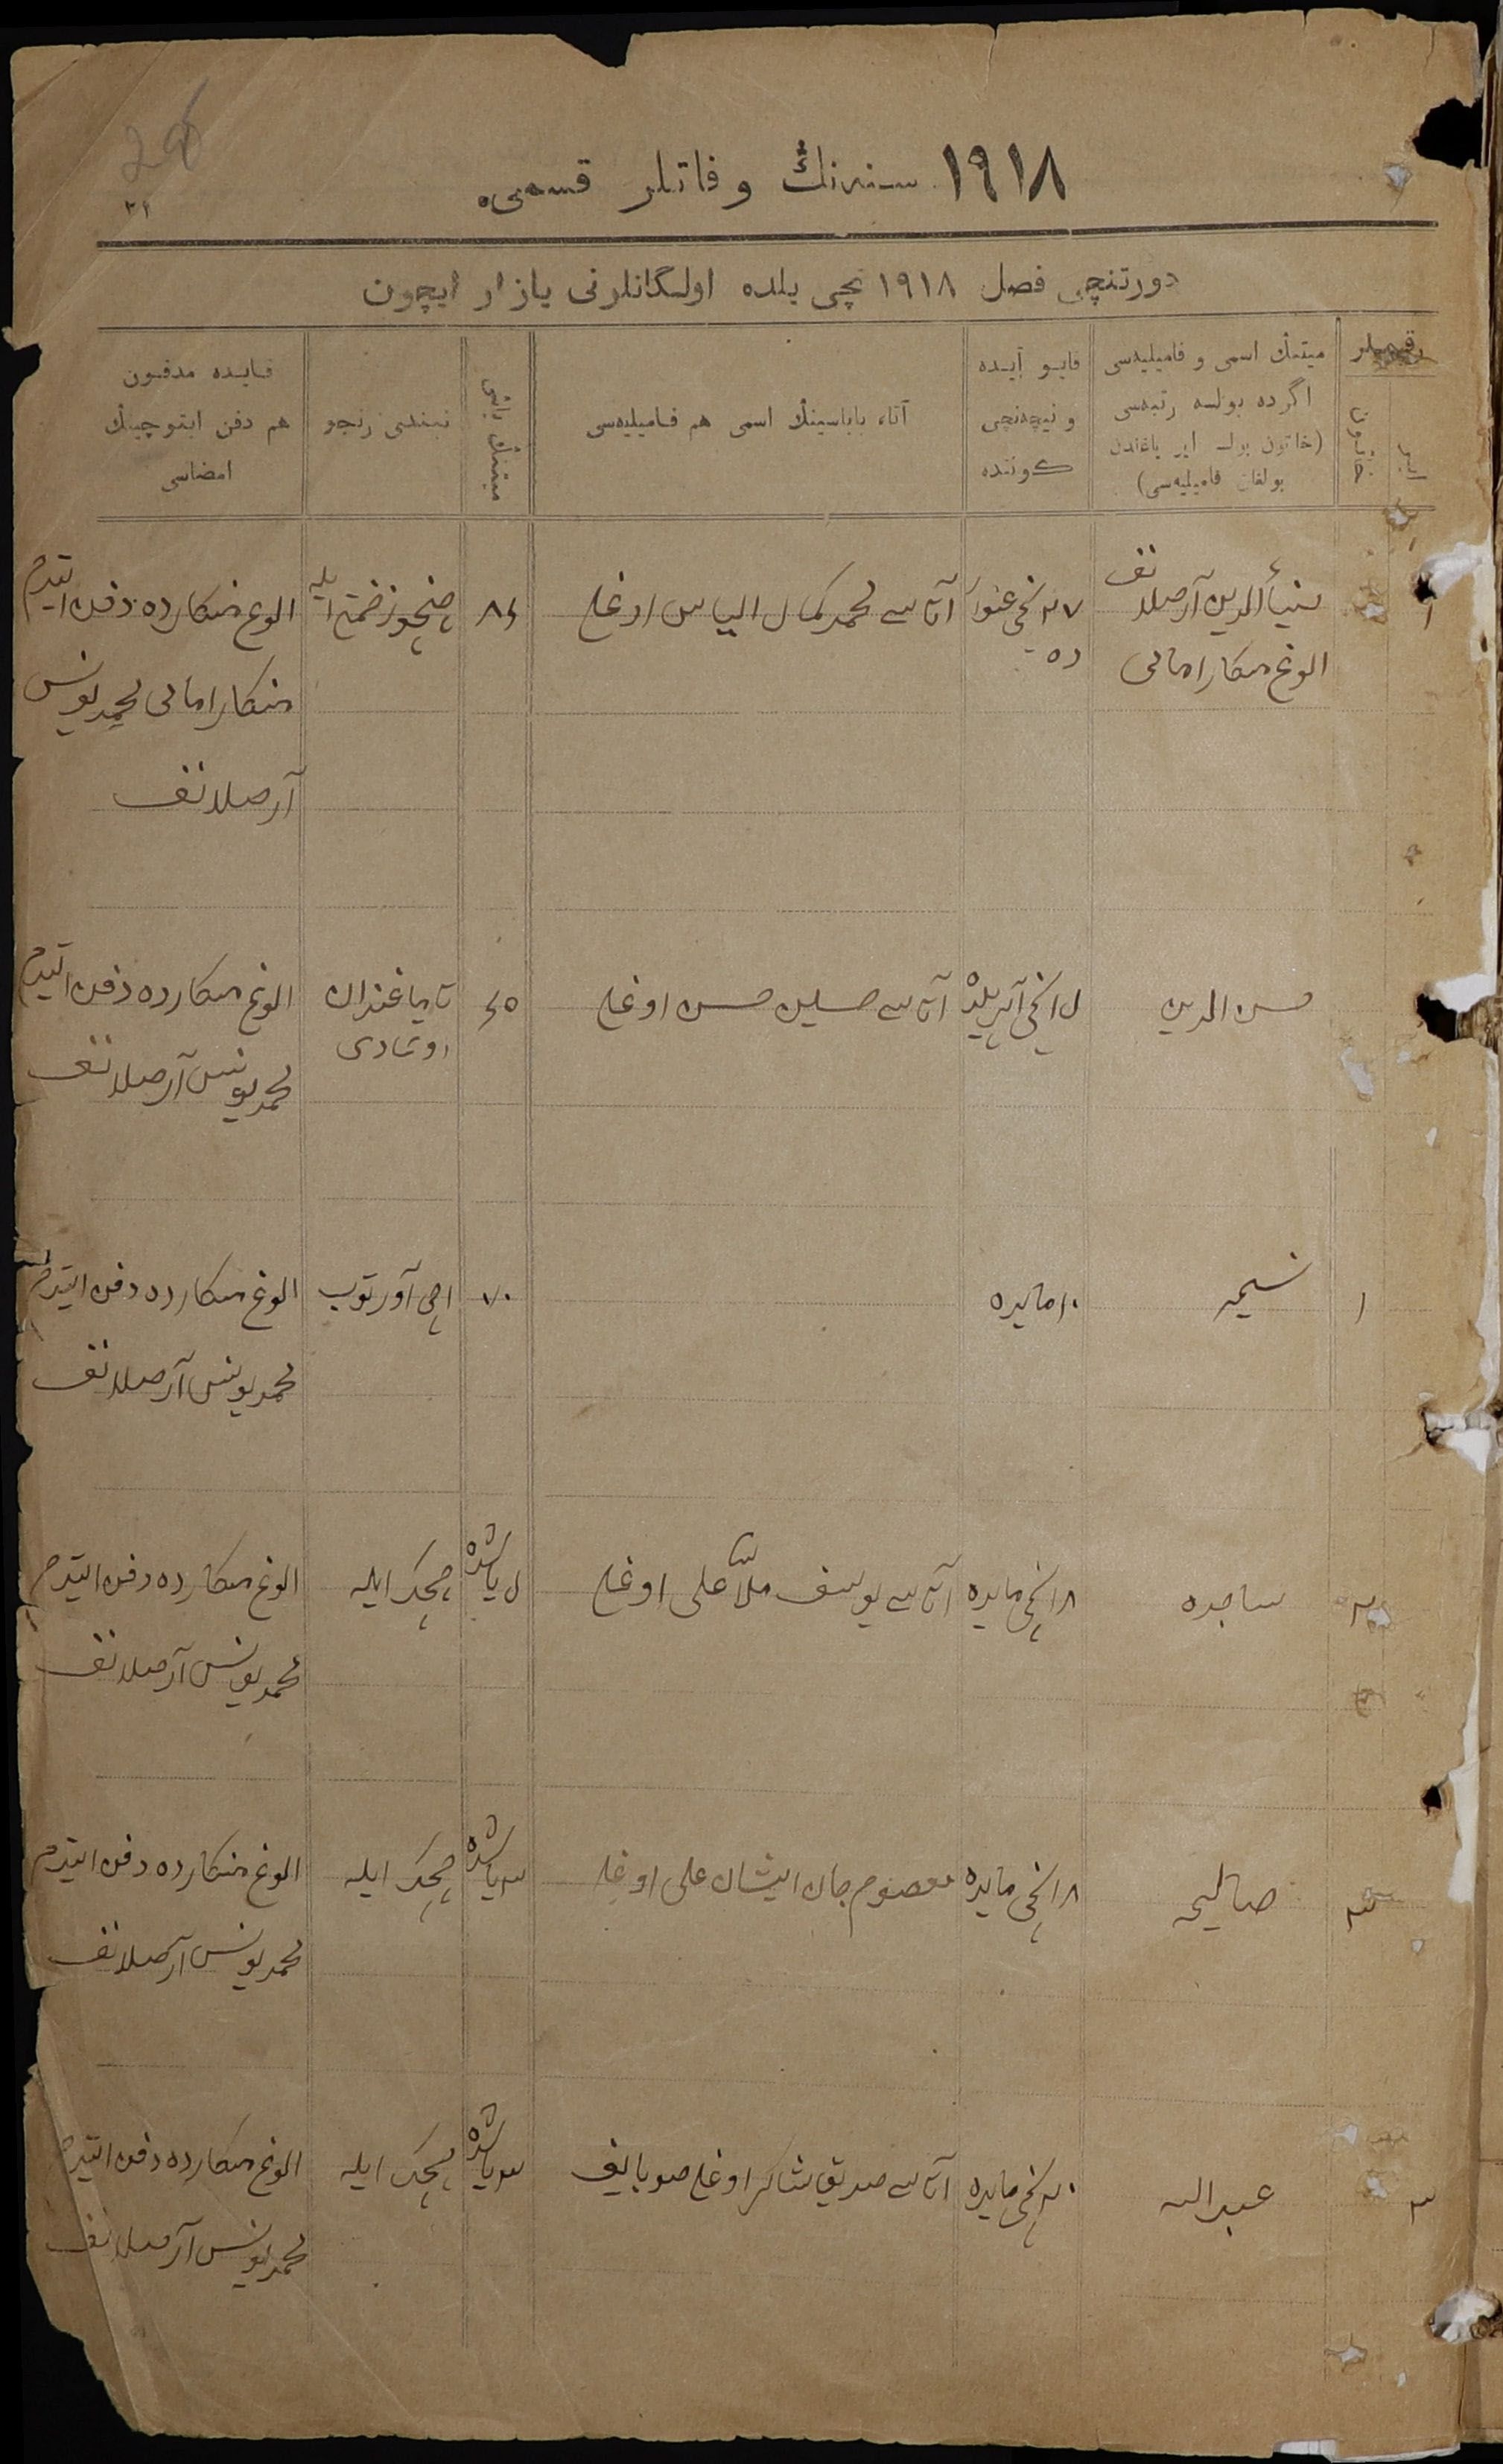 ١٩١٨ سنەنڭ وفاتلر قسمی.
٢١
دورتنچی فصل ١٩١٨ نچی یلده اولگانلرنی یازار ایچون
رقملر
ایر
خاتون
میتنڭ اسمی و فامیلیەسی
اگرده بولسه رتبەسی
(خاتون بولسە ایر یاغندن
بولغان فامیلیەسی)
قایو آیده
و نیچەنچی
كوننده
آتا، باباسینڭ اسمی هم فامیلیەسی
میتنڭ یاشی
نیندی رنجو
قایده مدفون
هم دفن ایتوچینڭ
امضاسی
١
آرصلانف
الوغ منکار امامی
٢٧ نچی
ده
آتاسی محمد کمال الیاس اوغلی
ایله
الوغ منکارده دفن ایتدم
منکار امامی محمد یونس
آرصلانف
حسن الدین
نچی آپریلده
آتاسی حسین حسن اوغلی
٤٥
الوغ منکارده دفن ایتدم
محمد یونس آرصلانف
١
نسیمه
١٠ مایده
٧٠
اچی آورتوب
الوغ منکارده دفن ایتدم
محمد یونس آرصلانف
٢
ساجده
١٨ نچی مایده
آتاسی یوسف ملا علی اوغلی
یاشده
چچک ایله
الوغ منکارده دفن ایتدم
محمد یونس آرصلانف
٣
صالیحه
١٨ نچی مایده
معصوم جان ایشان علی اوغلی
٣ یاشده
چچک ایله
الوغ منکارده دفن ایتدم
محمد یونس آرصلانف
٣
عبدالله
٢٠ نچی مایده
آتاسی صدیق شاکر اوغلی صوبایف
٣ یاشده
چچک ایله
الوغ منکارده دفن ایتدم
محمد یونس آرصلانف